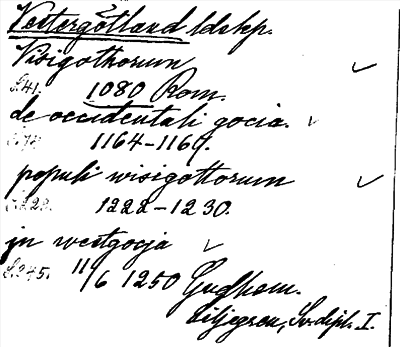 Vestergötland ldskp.
Visigothorum
S. 41. 1080 Rom.
de occidentali gocia.
1164-1167.
populi wisigottorum
S. 222. 1222-1230.
jn westgocja
S. 245. 11/6 1250 Gudhem.
Liljegren, Sv. dipl. I.